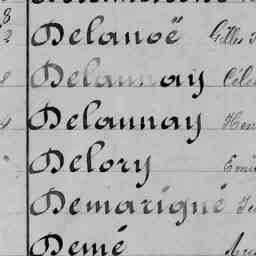 8
2 Delanoë Gilles
8 Delaunay Céles
4 Delaunay Hen
Delory Emi
Demarigné Je
Demé